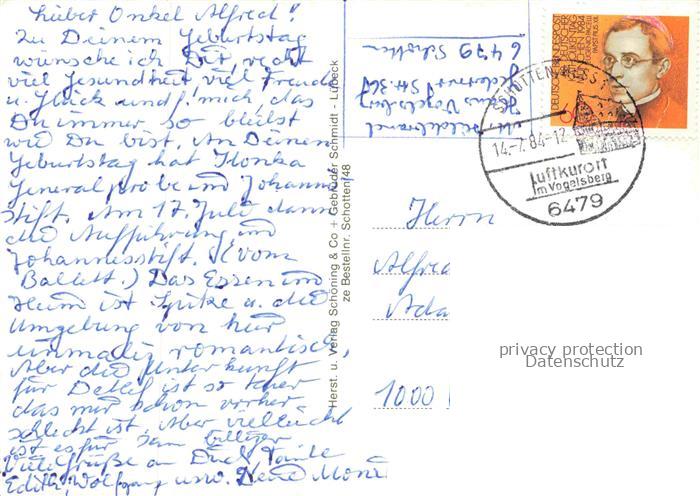 Lieber Onkel Alfred!
Zu Deinem Geburtstag
wünsche ich Dir, recht
viel Gesundheit viel Freude
u. Glück und! mich, das
Du immer so bleibst
wie Du bist. An Deinem
Geburtstag hat Ilonka
Generalprobe im Johannes
stift. Am 17. Juli dann
die Aufführung im
Johannesstift. (vom
Ballett.) Das Essen im
Heim ist Spitze u. die
Umgebung von hier
unmaßig romantisch,
Aber die Unterkunft
für Detlef ist so teuer
das mir schon vorher
schlecht ist. Aber vielleicht
ist es für ihn billiger
Viele Grüße an Dich Tante
Edith, Wolfgang usw. Deine Moni
Herst. u. Verlag Schöning & Co + Gebrüder Schmidt - Lübeck
ze Bestellnr. Schotten/48
Haus Vogelsberg
6479 Schotten
DEUTSCHE BUNDESPOST
DEUTSCHER
KATHOLIKENTAG
MÜNCHEN 1984
EUGENIO PACELLI
PAPST PIUS XII.
SCHOTTEN, HESS 1
14.-7.84-12
Luftkurort
im Vogelsberg
6479
Herrn
Alfred
Ada
1000
privacy protection
Datenschutz